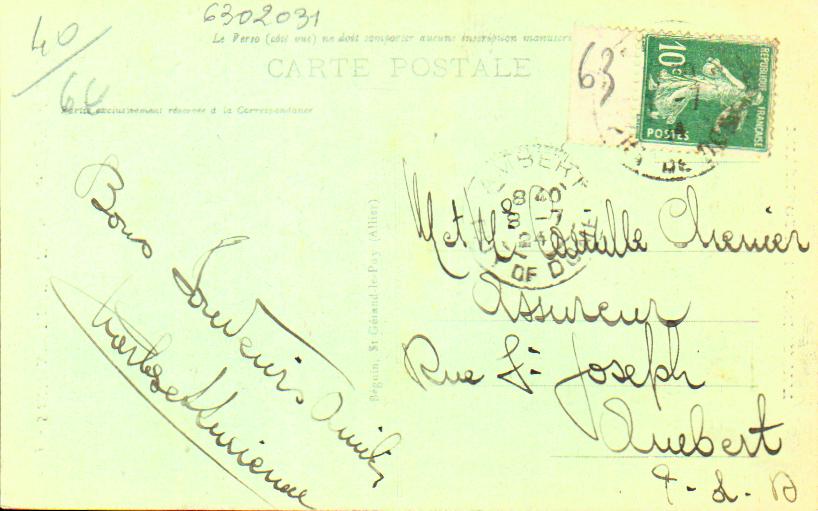 6302031
40
60
63
Le Verso (côté vue) ne doit comporter aucune inscription manuscrite
CARTE POSTALE
Partie exclusivement réservée à la Correspondance
10c
RÉPUBLIQUE FRANÇAISE
POSTES
AMBERT
DE DÔME
Bons Souvenirs Amitiés
Béguin, St Gérand-le-Puy (Allier)
M et Mme Chenier
Assureur
Rue St Joseph
Ambert
P-d-D